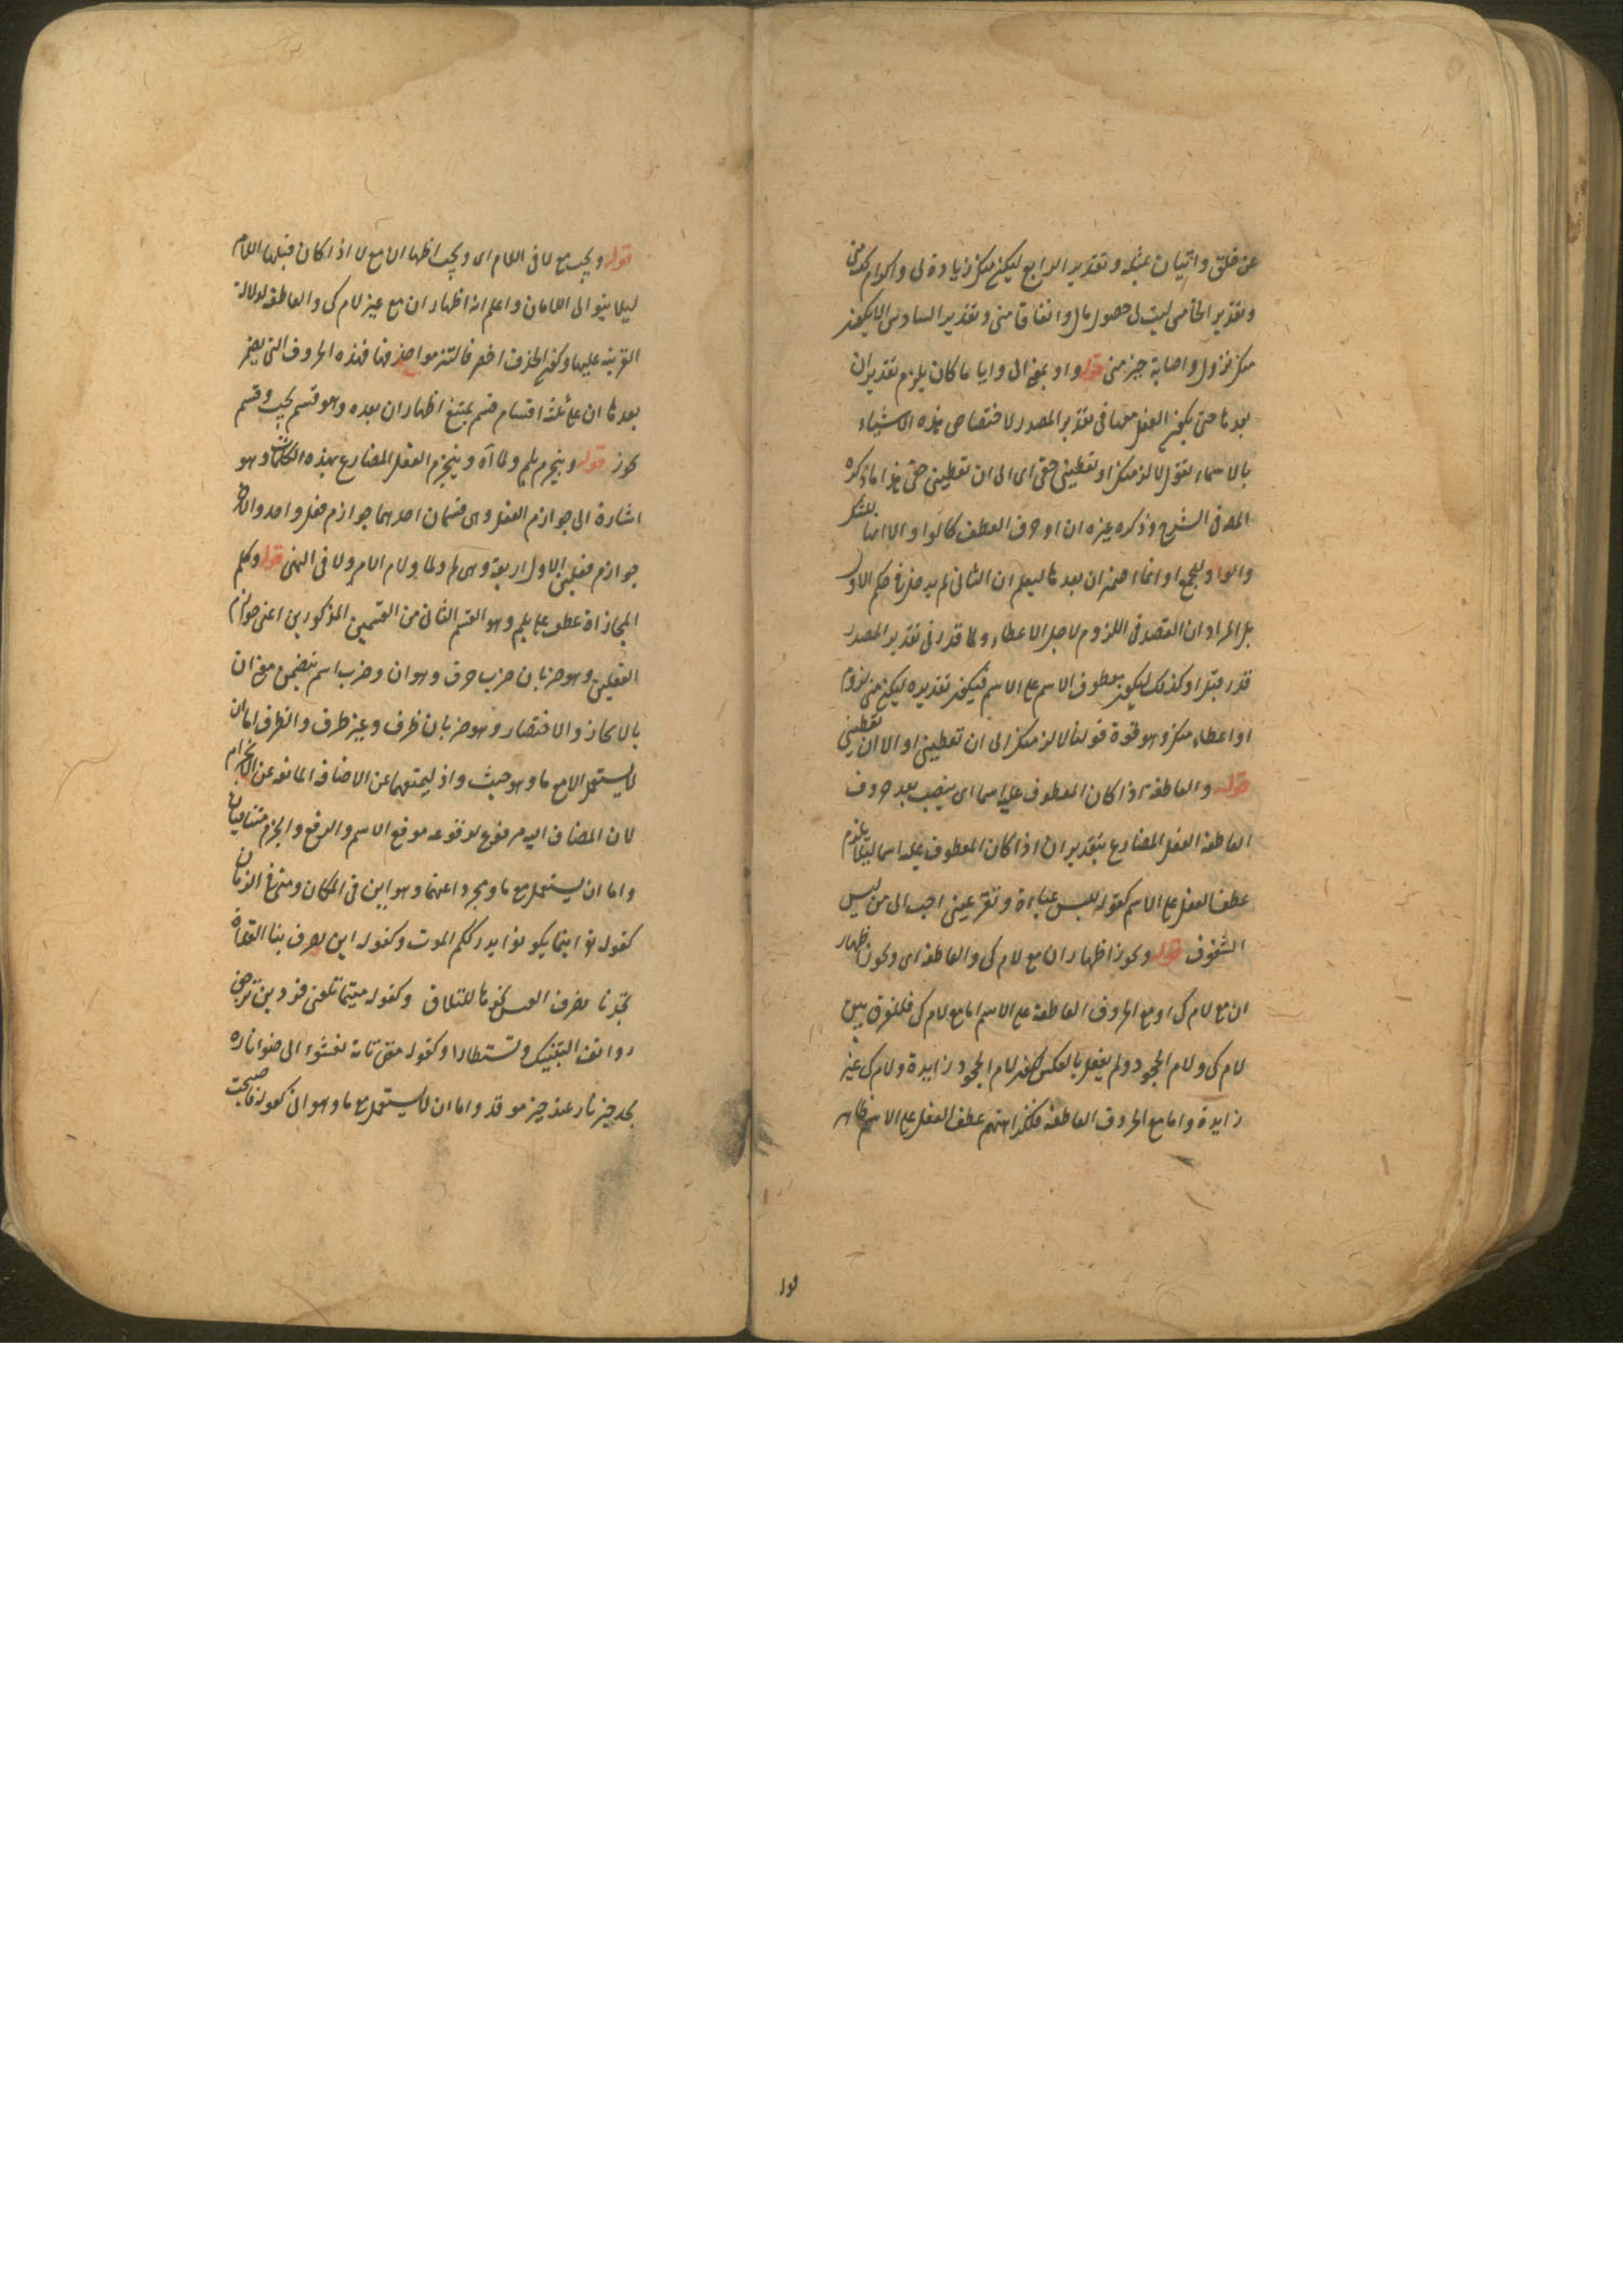 عن خلق واتيان بمثله وتقدير الرابع ليكن منك زيادة لى واكرام لك منى
وتقدير الخامس ليت لى حصول مال وانفاقا منى وتقدير السادس الا يكون
منك نزول واصابة خير منى قوله واو بمعنى الى وايا ما كان يلزم تقدير ان
بعدها حتى يكون الفعل معها فى تقدير المصدر لاختصاص هذه الاشياء
بالاسماء تقول لالزمنك او تعطينى حقى اى الى ان تعطينى حقى هذا ما ذكره
المص فى الشرح وذكر غيره ان او حرف العطف كالواو الا انها للشك
والواو للجمع وانما اضمر ان بعدها ليعلم ان الثانى لم يدخل فى حكم الاول
بل المراد ان القصد فى اللزوم لاجل الاعطاء ولما قدر فى تقدير المصدر
قدر قبل او كذلك ليكون معطوف الاسم على الاسم فيكون تقديره ليكن منى لزوم
او اعطاء منك وهو فى قوة قولنا لالزمنك الى ان تعطينى او الا ان تعطينى
قوله والعاطفة اذا كان المعطوف عليه اسما اى ينصب بعد حروف
العاطفة الفعل المضارع بتقدير ان اذا كان المعطوف عليه اسما ليلا يلزم
عطف الفعل على الاسم كقوله للبس عباءة وتقر عينى احب الى من لبس
الشفوف قوله ويجوز اظهار ان مع لام كى والعاطفة اى ويجوز اظهار
ان مع لام كى او مع الحروف العاطفة على الاسم اما مع لام كى فللفرق بين
لام كى ولام الجحود ولم يفعل بالعكس لكون لام الجحود زايدة ولام كى غير
زايدة واما مع الحروف العاطفة فلكراهتهم عطف الفعل على الاسم ظاهر
قوله
قوله ويجب مع لا فى اللام اى ويجب اظهار ان مع لا اذا كان قبلها اللام
ليلا يتوالى اللامان واعلم ان اظهار ان مع غير لام كى والعاطفة لدلالة
القرينة عليها وكون الحذف اخصر فالتزموا حذفها فهذه الحروف التى يضمر
بعدها ان على ثلثة اقسام قسم يمتنع اظهار ان بعده وهو قسم يجب وقسم
يجوز قوله وينجزم بلم ولما آه وينجزم الفعل المضارع بهذه الكلمات وهو
اشارة الى جوازم الفعل وهى قسمان احدهما جوازم فعل واحد والاخر
جوازم فعلين الاول اربعة وهى لم ولما ولام الامر ولا فى النهى قوله وكلم
المجازاة عطف على بلم وهو القسم الثانى من القسمين المذكورين اعنى جوازم
الفعلين وهو ضربان ضرب حرف وهو ان وضرب اسم يتضمن معنى ان
بالايجاز والاختصار وهو ضربان ظرف وغير ظرف والظرف اما ان
لا يستعمل الا مع ما وهو حيث واذ ليمنعهما عن الاضافة المانعة عن الانجزام
لان المضاف اليه مرفوع لوقوعه موقع الاسم والرفع والجزم متنافيان
واما ان يستعمل مع ما ومجردا عنها وهو اين فى المكان ومتى فى الزمان
كقوله تع اينما يكونوا يدرككم الموت وكقوله اين يصرف بنا العداة
تجدنا نصرف العيس نحوها للتلاق وكقوله متى ما تلقنى فردين ترجف
روانف اليتيك وتستطارا وكقوله متى تاته تعشوا الى ضوء ناره
تجد خير نار عندها خير موقد واما ان لا يستعمل مع ما وهو انى كقوله فاصبحت